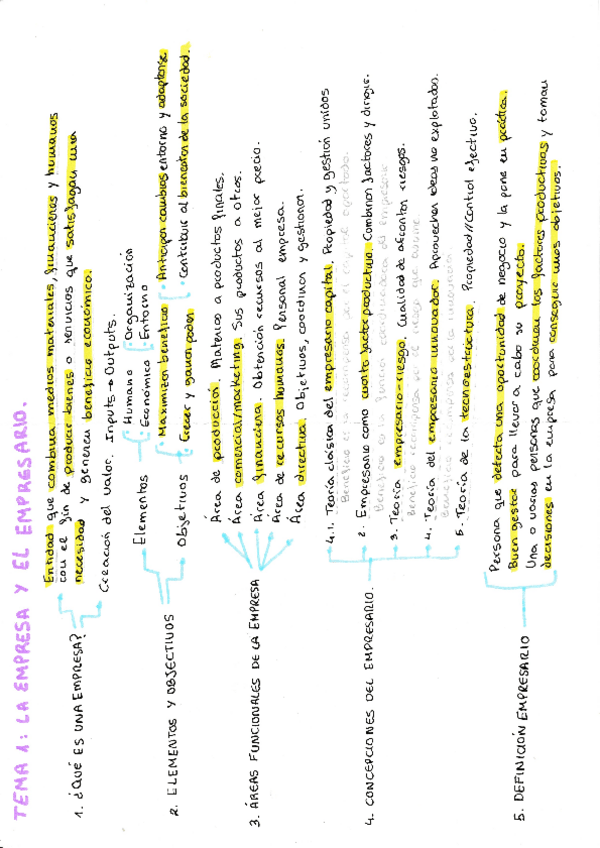 TEMA 1: LA EMPRESA Y EL EMPRESARIO.
1. ¿QUÉ ES UNA EMPRESA?
Entidad que combina medios materiales, financieros y humanos
con el fin de producir bienes o servicios que satisfagan una
necesidad y generen beneficio económico.
Creación del valor. Inputs → Outputs.
2. ELEMENTOS Y OBJECTIVOS
Elementos
Humano
Económico
Organización
Entorno
Objetivos
Maximizar beneficio
Crecer y ganar poder
• Anticipar cambios entorno y adaptarse
• Contribuir al bienestar de la sociedad.
3. ÁREAS FUNCIONALES DE LA EMPRESA
Área de producción. Materias a productos finales.
Área comercial/marketing. Sus productos a otros.
Área financiera. Obtención recursos al mejor precio.
Área de recursos humanos. Personal empresa.
Área directiva. Objetivos, coordinar y gestionar.
4. CONCEPCIONES DEL EMPRESARIO.
1. Teoría clásica del empresario capital. Propiedad y gestión unidos
Beneficio es la recompensa por el capital aportado.
2. Empresario como cuarto factor productivo. Combinar factores y dirigir.
Beneficio es la función coordinadora del empresario
3. Teoría empresario-riesgo. Cualidad de afrontar riesgos.
Beneficio recompensa por el riesgo que asume.
4. Teoría del empresario innovador. Aprovechar ideas no explotadas.
Beneficio recompensa por la innovación.
5. Teoría de la tecnoestructura. Propiedad//Control efectivo.
5. DEFINICIÓN EMPRESARIO
Persona que detecta una oportunidad de negocio y la pone en práctica.
Buen gestor para llevar a cabo su proyecto.
Una o varias personas que coordinan los factores productivos y toman
decisiones en la empresa para conseguir unos objetivos.